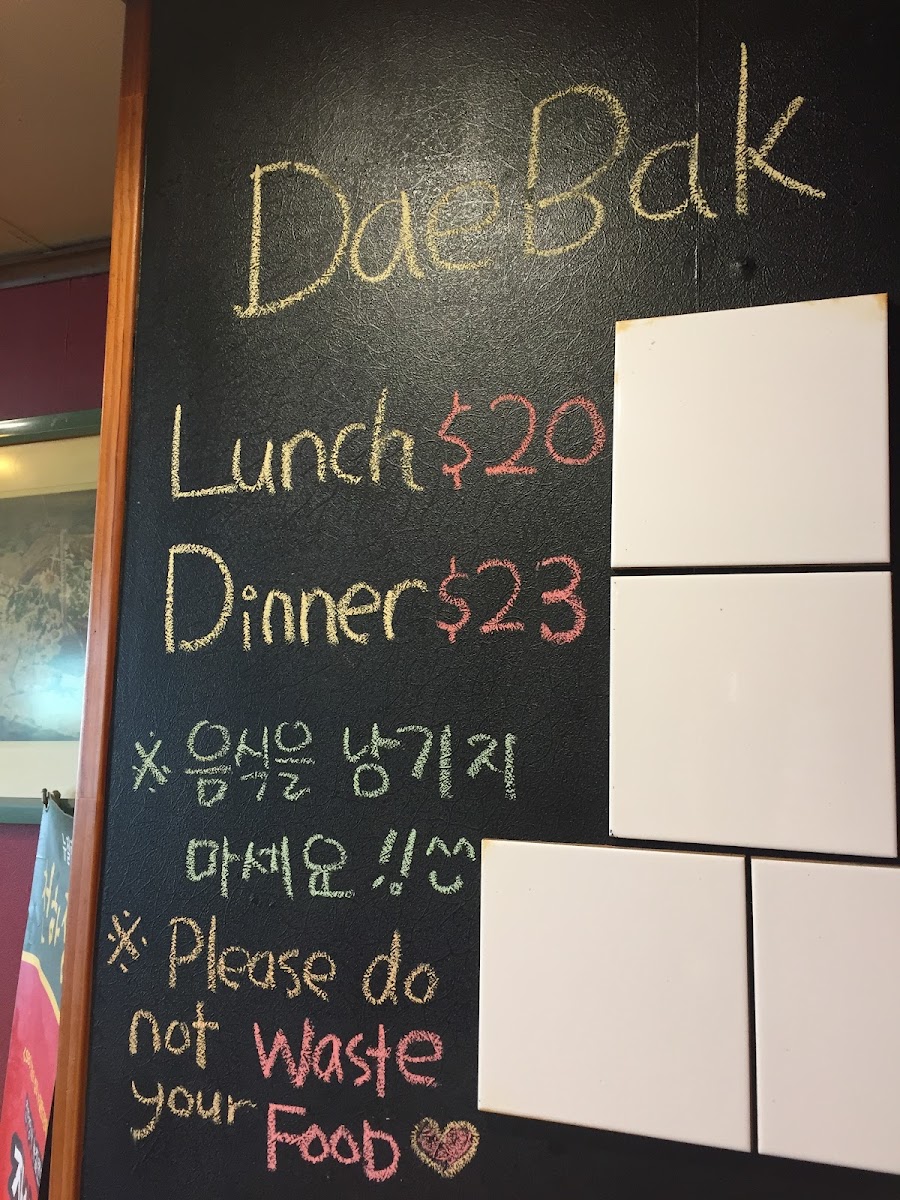 DaeBak
Lunch $20
Dinner $23
※ 음식을 낭기지
마세요!!
※ Please do
not Waste
your Food